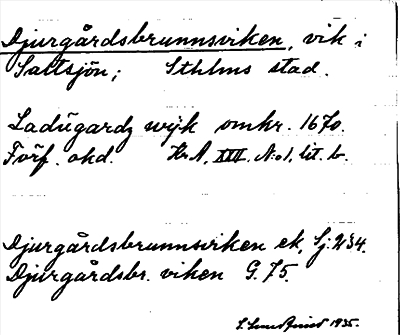 Djurgårdsbrunnsviken, vik i
Saltsjön; Sthlms stad.
Ladugardz wijk omkr. 1670.
Förf. okd. Kr A, XIII. No 1, lit. b.
Djurgårdsbrunnsviken ek,
Djurgårdsbr. viken G. 75.
1935.